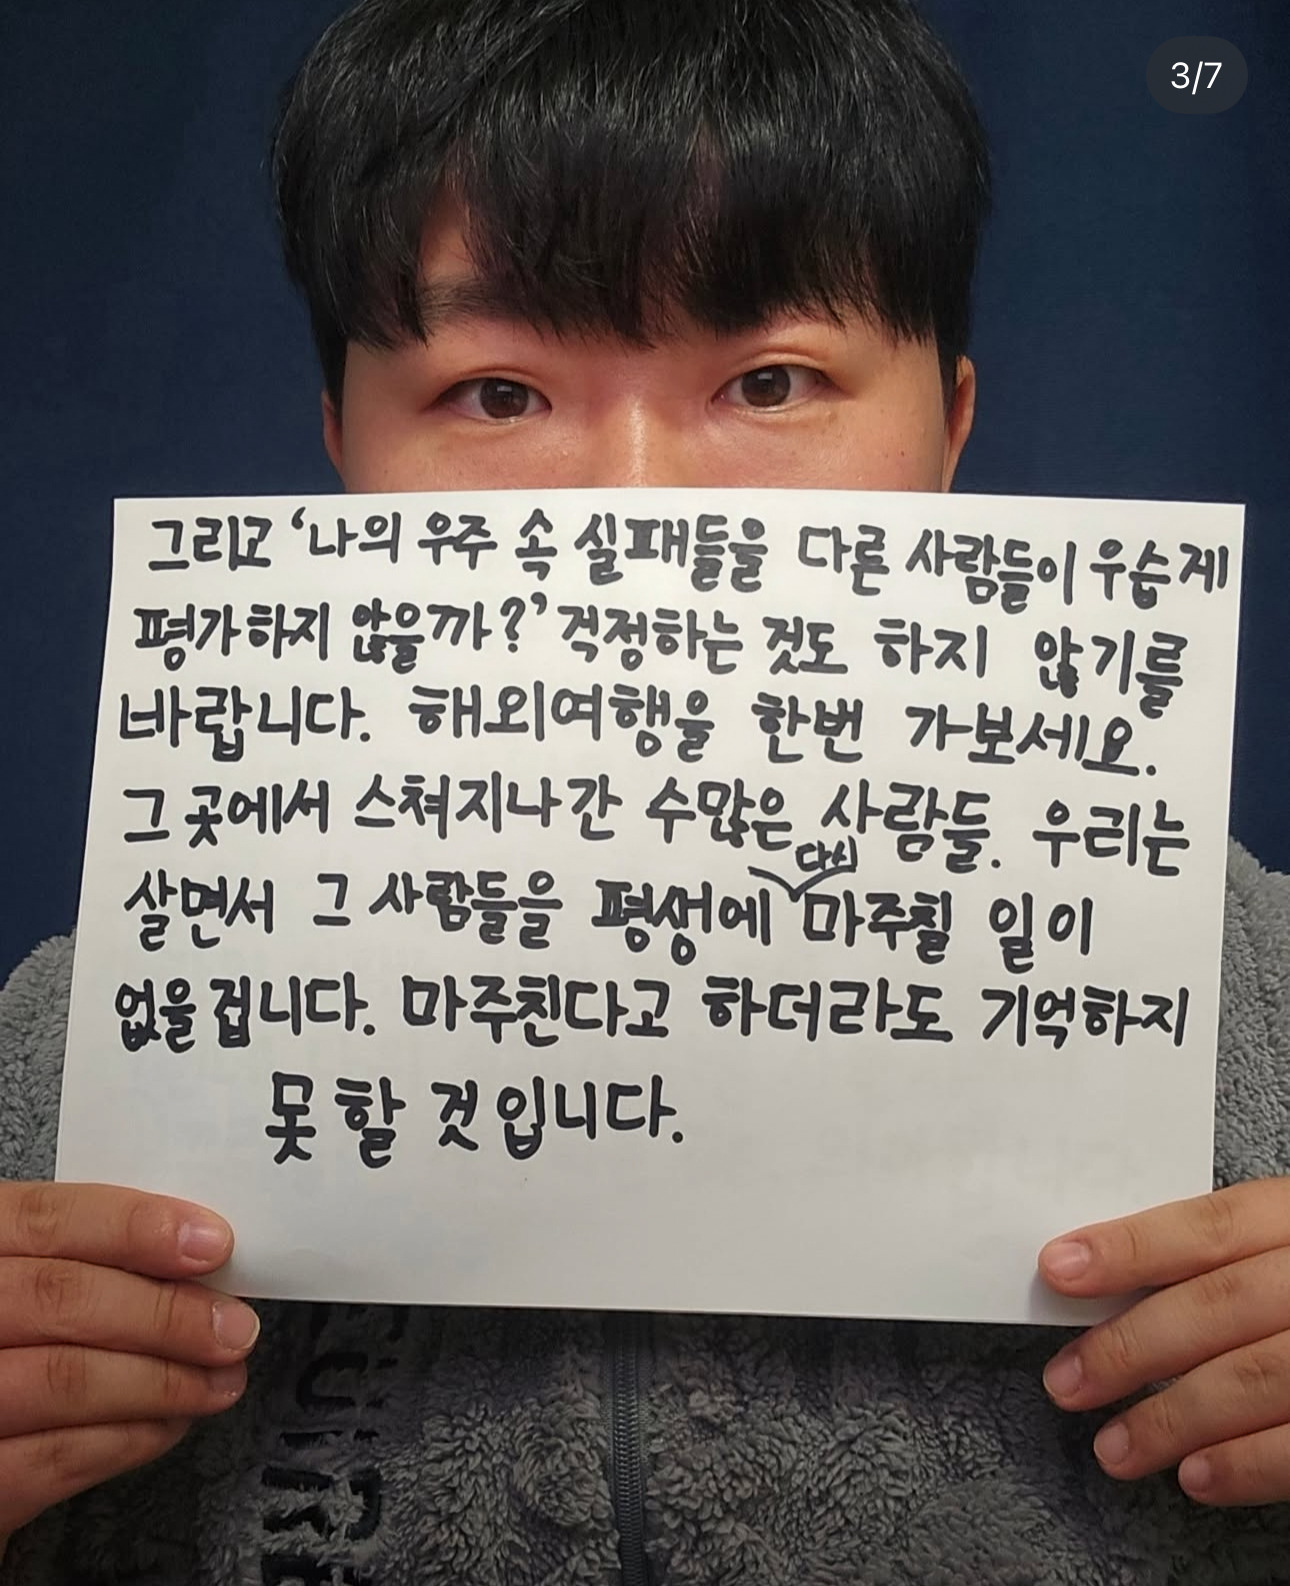 3/7
그리고 ‘나의 우주 속 실패들을 다른 사람들이 우습게
평가하지 않을까?’ 걱정하는 것도 하지 않기를
바랍니다. 해외여행을 한번 가보세요.
그 곳에서 스쳐지나간 수많은 사람들. 우리는
살면서 그 사람들을 평생에 다시 마주칠 일이
없을겁니다. 마주친다고 하더라도 기억하지
못할 것입니다.